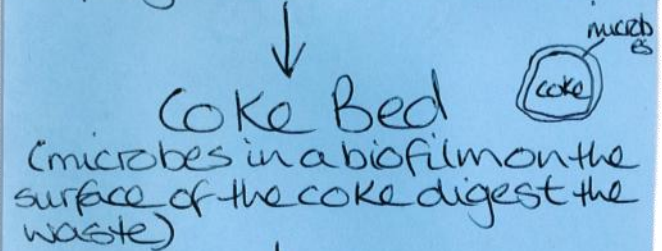 microb
es
coke
Coke Bed
(microbes in a biofilm on the
surface of the coke digest the
waste)